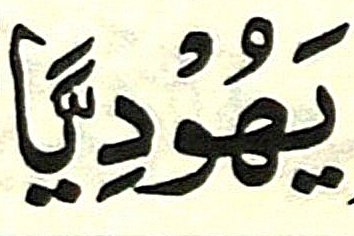 يَهُوْدِيًّا